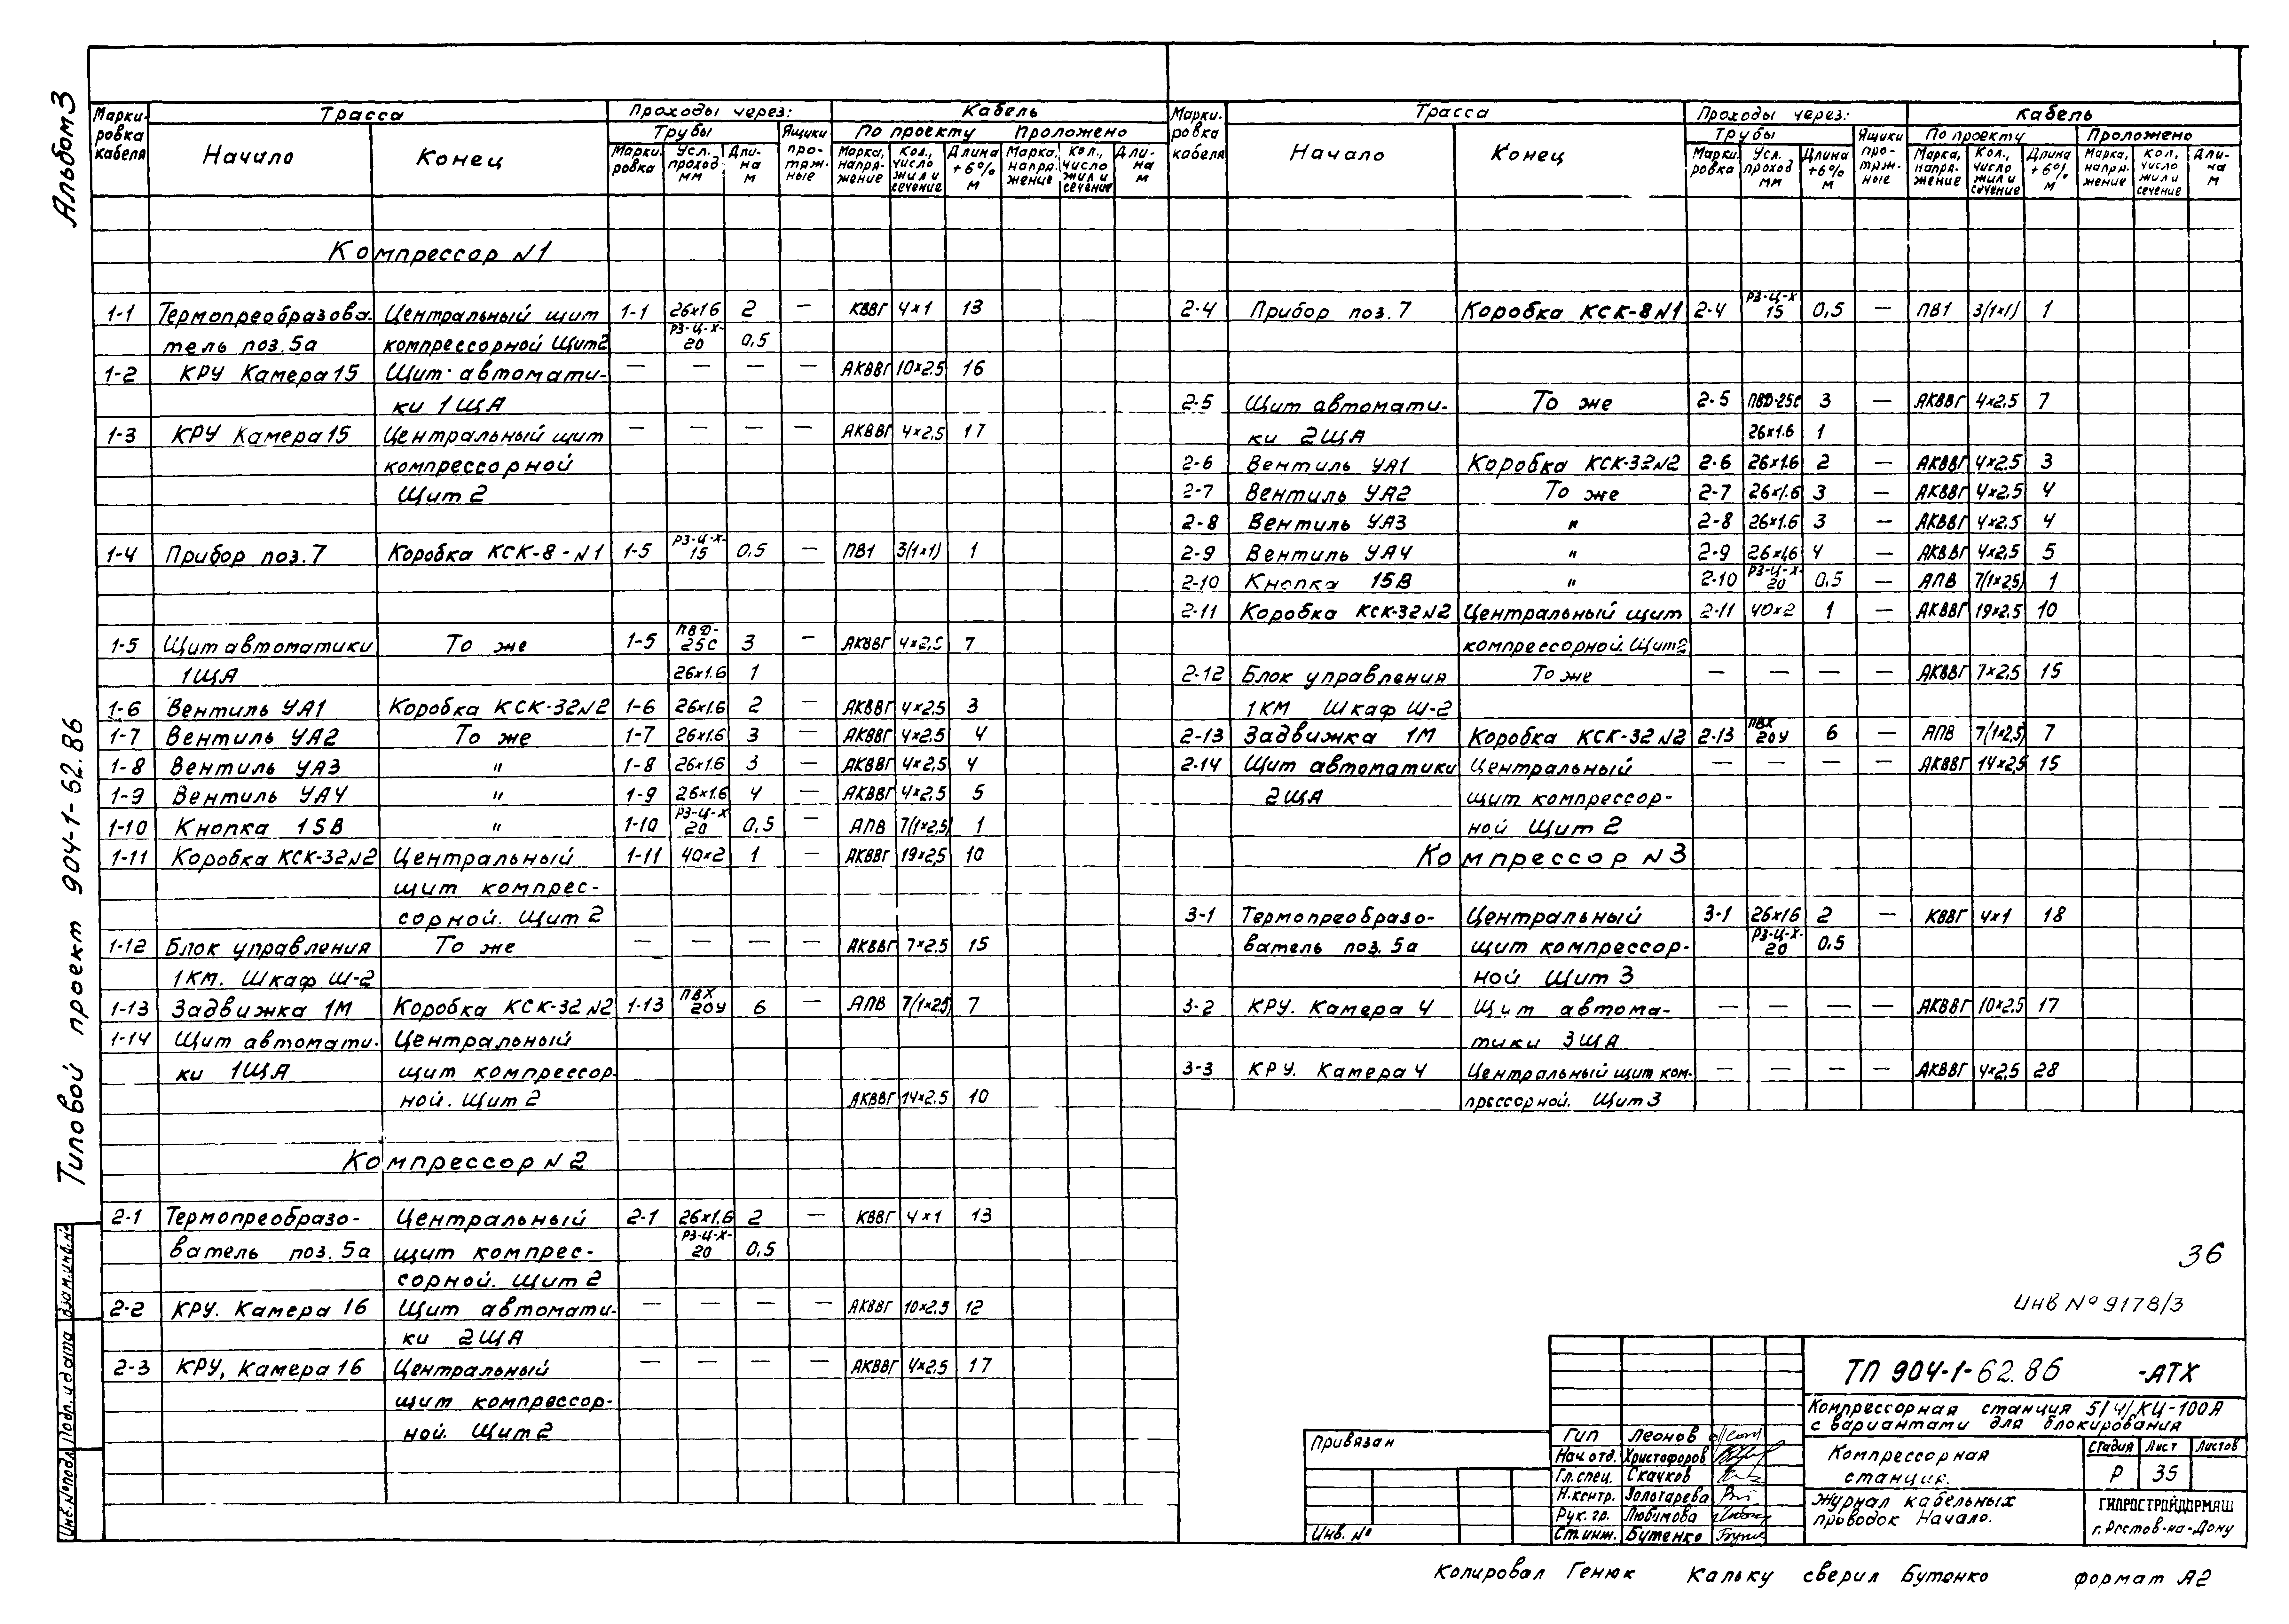 Альбом 3
Типовой проект 904-1-62.86
Инв.№подл. Подп. и дата Взам.инв.№
Марки- Трасса Проходы через: Кабель
ровка кабеля Начало Конец Трубы Ящики про- тяж- ные По проекту Проложено
Марки- ровка Усл. проход мм Дли- на м Марка, напря- жение Кол., число жил и сечение Длина +6% м Марка, напря- жение Кол., число жил и сечение Дли- на м
Компрессор N1
1-1 Термопреобразова- Центральный щит 1-1 26х1.6 2 — КВВГ 4х1 13
тель поз. 5а компрессорной Щит 2 РЗ-Ц-Х-20 0,5
1-2 КРУ Камера 15 Щит автомати- — — — — АКВВГ 10х2.5 16
ки 1ЩА
1-3 КРУ Камера 15 Центральный щит — — — — АКВВГ 4х2,5 17
компрессорной
Щит 2
1-4 Прибор поз. 7 Коробка КСК-8-N1 1-5 РЗ-Ц-Х-15 0,5 — ПВ1 3(1х1) 1
1-5 Щит автоматики То же 1-5 ПВД-25С 3 — АКВВГ 4х2,5 7
1ЩА 26х1.6 1
1-6 Вентиль УА1 Коробка КСК-32N2 1-6 26х1.6 2 — АКВВГ 4х2.5 3
1-7 Вентиль УА2 То же 1-7 26х1.6 3 — АКВВГ 4х2.5 4
1-8 Вентиль УА3 " 1-8 26х1.6 3 — АКВВГ 4х2,5 4
1-9 Вентиль УА4 " 1-9 26х1.6 4 — АКВВГ 4х2.5 5
1-10 Кнопка 1SВ " 1-10 РЗ-Ц-Х 20 0,5 — АПВ 7(1х2,5) 1
1-11 Коробка КСК-32N2 Центральный 1-11 40х2 1 — АКВВГ 19х2,5 10
щит компрес-
сорной. Щит 2
1-12 Блок управления То же — — — — АКВВГ 7х2.5 15
1КМ. Шкаф Ш-2
1-13 Задвижка 1М Коробка КСК-32N2 1-13 ПВХ 20У 6 — АПВ 7(1х2.5) 7
1-14 Щит автомати- Центральный
ки 1ЩА щит компрессор-
ной. Щит 2 АКВВГ 14х2.5 10
Компрессор N2
2-1 Термопреобразо- Центральный 2-1 26х1.6 2 — КВВГ 4х1 13
ватель поз. 5а щит компрес- РЗ-Ц-Х-20 0,5
сорной. Щит 2
2-2 КРУ. Камера 16 Щит автомати- — — — — АКВВГ 10х2.5 12
ки 2ЩА
2-3 КРУ, Камера 16 Центральный — — — — АКВВГ 4х2.5 17
щит компрессор-
ной. Щит 2
Марки- Трасса Проходы через: Кабель
ровка кабеля Начало Конец Трубы Ящики про- тяж- ные По проекту Проложено
Марки- ровка Усл. проход мм Длина +6% м Марка, напря- жение Кол., число жил и сечение Длина +6% м Марка, напря- жение Кол, число жил и сечение Дли- на м
2-4 Прибор поз. 7 Коробка КСК-8N1 2-4 РЗ-Ц-Х 15 0,5 — ПВ1 3(1х1) 1
2-5 Щит автомати- То же 2-5 ПВД-25С 3 — АКВВГ 4х2.5 7
ки 2ЩА 26х1.6 1
2-6 Вентиль УА1 Коробка КСК-32N2 2-6 26х1.6 2 — АКВВГ 4х2,5 3
2-7 Вентиль УА2 То же 2-7 26х1.6 3 — АКВВГ 4х2.5 4
2-8 Вентиль УА3 " 2-8 26х1.6 3 — АКВВГ 4х2.5 4
2-9 Вентиль УА4 " 2-9 26х1,6 4 — АКВВГ 4х2.5 5
2-10 Кнопка 1SВ " 2-10 РЗ-Ц-Х-20 0,5 — АПВ 7(1х2,5) 1
2-11 Коробка КСК-32N2 Центральный щит 2-11 40х2 1 — АКВВГ 19х2,5 10
компрессорной. Щит 2
2-12 Блок управления То же — — — — АКВВГ 7х2.5 15
1КМ Шкаф Ш-2
2-13 Задвижка 1М Коробка КСК-32N2 2-13 ПВХ 20У 6 — АПВ 7(1х2,5) 7
2-14 Щит автоматики Центральный — — — — АКВВГ 14х2,5 15
2ЩА щит компрессор-
ной Щит 2
Компрессор N3
3-1 Термопреобразо- Центральный 3-1 26х1.6 2 — КВВГ 4х1 18
ватель поз. 5а щит компрессор- РЗ-Ц-Х-20 0.5
ной Щит 3
3-2 КРУ. Камера 4 Щит автома- — — — — АКВВГ 10х2.5 17
тики 3ЩА
3-3 КРУ. Камера 4 Центральный щит ком- — — — — АКВВГ 4х2,5 28
прессорной. Щит 3
36
Инв № 9178/3
Привязан
Инв. №
ГИП Леонов
Нач. отд. Христофоров
Гл. спец. Скачков
Н.контр. Золотарева
Рук. гр. Любимова
Ст. инж. Бутенко
ТП 904-1-62.86 -АТХ
Компрессорная станция 5/4/КЦ-100А
с вариантами для блокирования
Компрессорная
станция.
Стадия Лист Листов
Р 35
Журнал кабельных
приводок Начало.
ГИПРОСТРОЙДОРМАШ
г. Ростов-на-Дону
Копировал Генюк Кальку сверил Бутенко формат А2